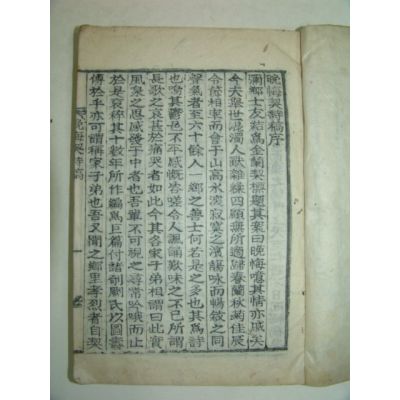 晩悔契詩稿序
同鄕士友結爲金蘭契標題其案曰晩悔噫其情亦戚矣
今夫擧世昏濁人獸雜糅四顧無所適歸春蘭秋菊佳辰
令節相率而會于山高水淸寂寞之濱觴咏而暢敍之同
聲氣者至六十餘人一鄕之善士何若是之多也其爲詩
也嗚其鬱邑不平感慨咨嗟令人諷誦歎味之不已所謂
長歌之哀甚於痛哭者如此今其各家子弟相謂曰此實
風泉之思感發于中者也吾輩不可視之尋常吟哦而止
於是裒稡其十數年所作編爲巨篇付諸剞劂氏以圖壽
傳於乎亦可謂稱家子弟也吾又聞之鄕里孝烈者自契
晩悔契詩稿
一